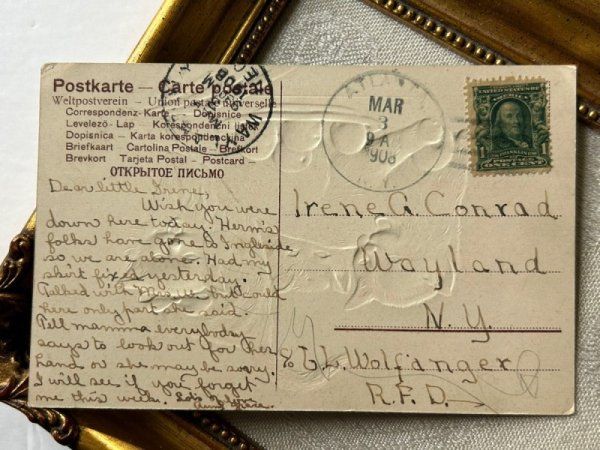 Postkarte — Carte postale
Weltpostverein – Union postale universelle
Correspondenz-Karte – Dopisnice
Levelező-Lap – Korespondenční lístek
Dopisnica – Karta korespondencyjna
Briefkaart – Cartolina Postale – Brefkort
Brevkort Tarjeta Postal – Postcard
ОТКРЫТОЕ ПИСЬМО
Dear little Irene,
Wish you were
down here today. Herm's
folks have gone to Ingleside
so we are alone. Had my
skirt fixed yesterday.
Talked with but could
hear only part she said.
Tell mamma everybody
says to look out for her
hand or she may be sorry.
I will see if you forget
me this week. Lots of love
Aunt
WAYLAND
ATLANTA
MAR
3
9 A
1908
N.Y.
UNITED STATES OF
AMERICA
1 1
POSTAGE
ONE CENT
Irene G. Conrad
Wayland
N.Y.
c/o L.L. Wolfanger
R.F.D.